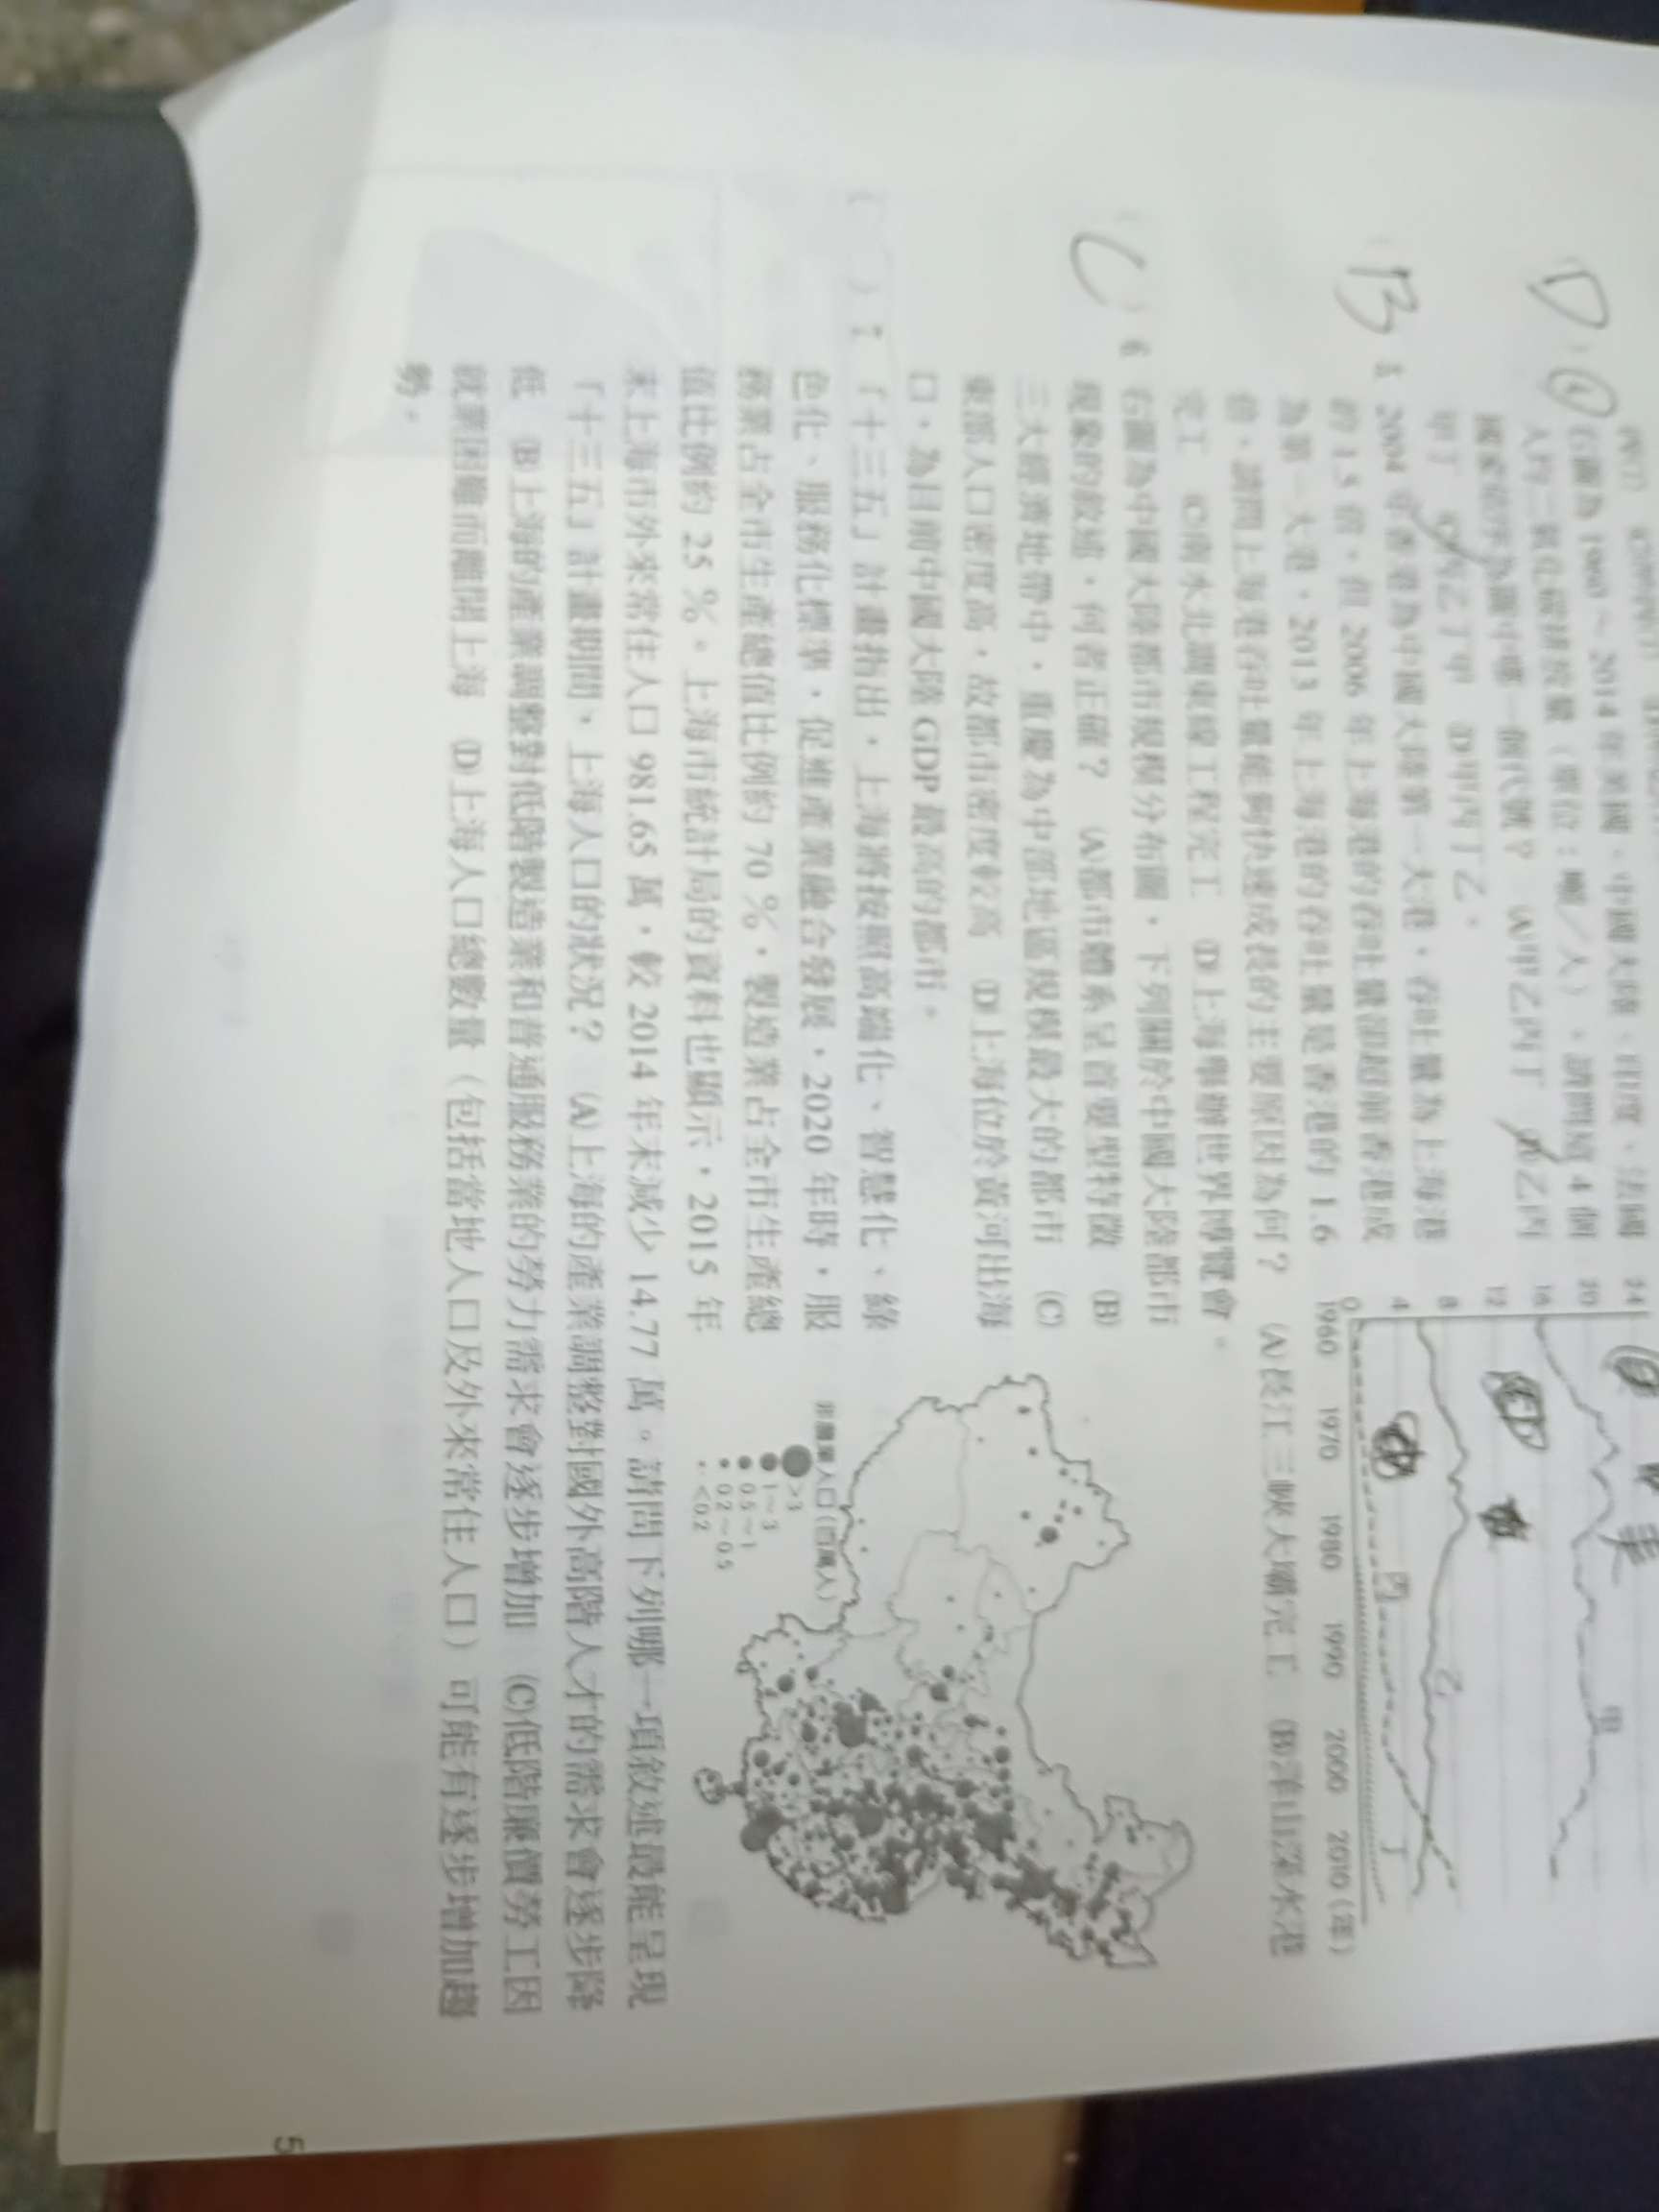 D ( ) 4 右圖為 1960～2014 年美國、中國大陸、印度、法國
人均二氧化碳排放量（單位：噸／人），請問這 4 個
國家依序為圖中哪一個代號？ (A)甲乙丙丁 (B)乙丙
甲丁 (C)丙乙丁甲 (D)甲丙丁乙。
24
20
16
12
8
4
0
1960 1970 1980 1990 2000 2010 (年)
美
甲
乙
丙
丁
B ( ) 5 2004 年香港為中國大陸第一大港，吞吐量為上海港
的 1.5 倍，但 2006 年上海港的吞吐量卻超前香港成
為第一大港，2013 年上海港的吞吐量是香港的 1.6
倍，請問上海港吞吐量能夠快速成長的主要原因為何？ (A)長江三峽大壩完工 (B)洋山深水港
完工 (C)南水北調東線工程完工 (D)上海舉辦世界博覽會。
C ( ) 6 右圖為中國大陸都市規模分布圖，下列關於中國大陸都市
現象的敘述，何者正確？ (A)都市體系呈首要型特徵 (B)
三大經濟地帶中，重慶為中部地區規模最大的都市 (C)
東部人口密度高，故都市密度較高 (D)上海位於黃河出海
口，為目前中國大陸 GDP 最高的都市。
非農業人口（百萬人）
>3
1～3
0.5～1
0.2～0.5
<0.2
( ) 7 「十三五」計畫指出，上海將按照高端化、智慧化、綠
色化、服務化標準，促進產業融合發展，2020 年時，服
務業占全市生產總值比例約 70 %，製造業占全市生產總
值比例約 25 %。上海市統計局的資料也顯示，2015 年
末上海市外來常住人口 981.65 萬，較 2014 年末減少 14.77 萬。請問下列哪一項敘述最能呈現
「十三五」計畫期間，上海人口的狀況？ (A)上海的產業調整對國外高階人才的需求會逐步降
低 (B)上海的產業調整對低階製造業和普通服務業的勞力需求會逐步增加 (C)低階廉價勞工因
就業困難而離開上海 (D)上海人口總數量（包括當地人口及外來常住人口）可能有逐步增加趨
勢。
5